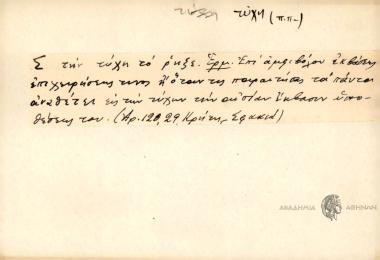 τύχη τύχη (π.π.)
Σ τὴν τύχη τό ῥηξε. Ἑρμ. Ἐπὶ ἀμφιβόλου ἐκβάσεως
ἐπιχειρήσεώς τινος ἢ ὅταν τις παραιτήσας τὰ πάντα
ἀναθέτει εἰς τὴν τύχην τὴν αἰσίαν ἔκβασιν ὑπο-
θέσεώς του. (Ἀρ. 120, 29 Κρήτη, Σφακιά)
ΑΚΑΔΗΜΙΑ ΑΘΗΝΩΝ